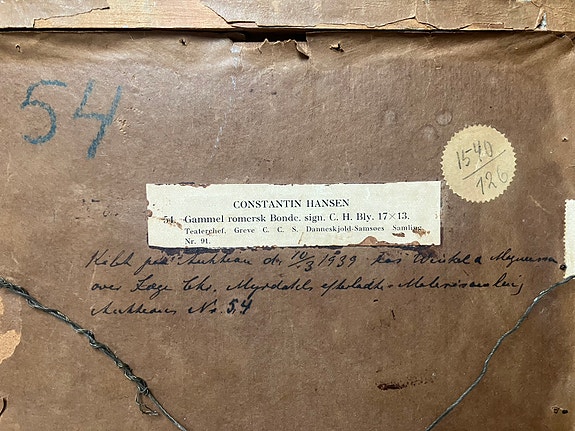 54
1540
126
CONSTANTIN HANSEN
54. Gammel romersk Bonde. sign. C. H. Bly. 17×13.
Teaterchef, Greve C. C. S. Danneskjold-Samsoes Samling
Nr. 91.
Købt paa Auktion d. 10/3 1939 hos Winkel & Magnussen
over Læge Chr. Myrdahls efterladte Malerisamling
Auktions No. 54